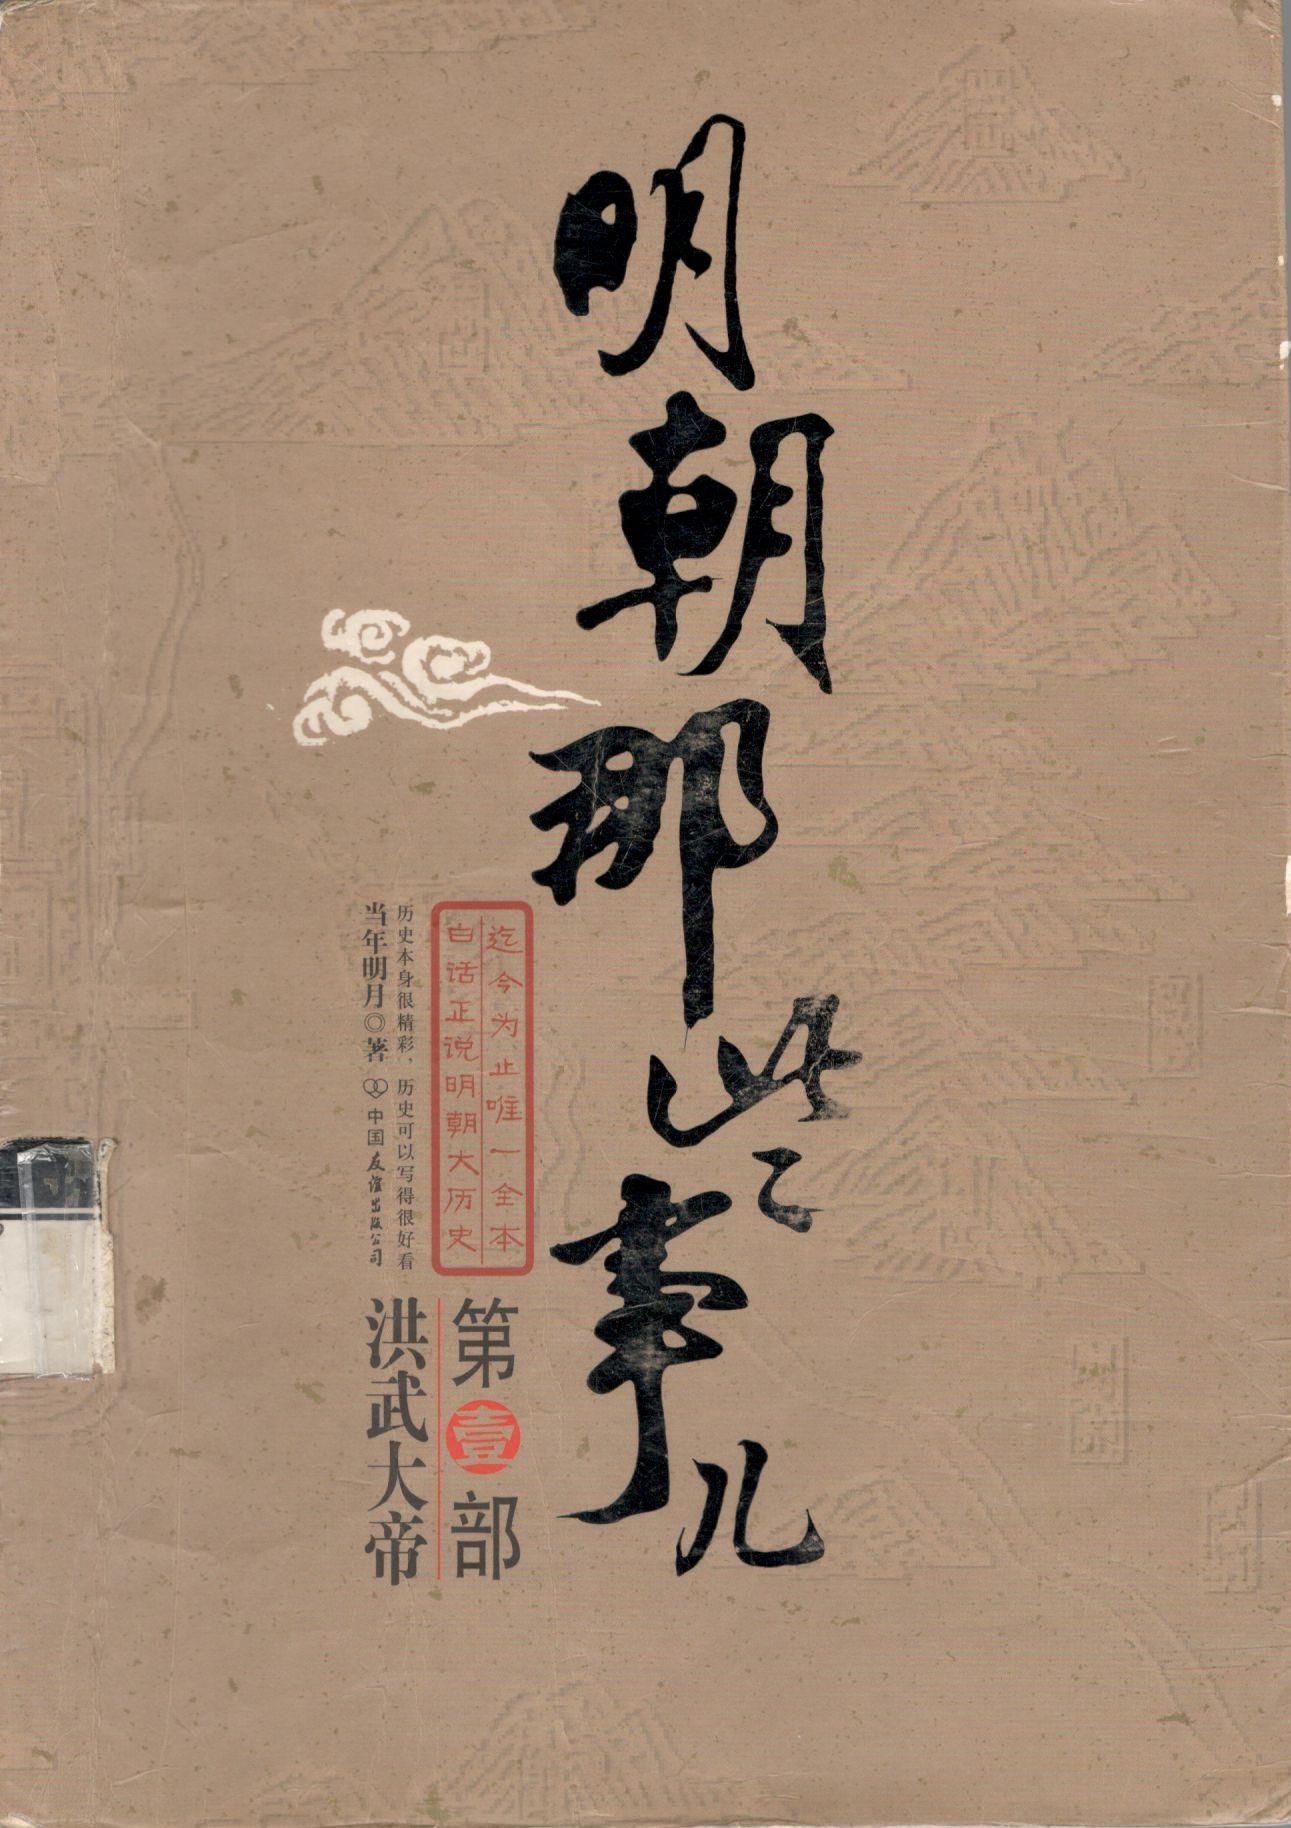 明朝那些事儿
迄今为止唯一全本
白话正说明朝大历史
历史本身很精彩，历史可以写得很好看
当年明月◎著 中国友谊出版公司
第壹部
洪武大帝